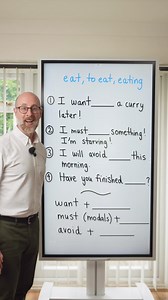 eat, to eat, eating
① I want____ a curry
later!
② I must ____ something!
I'm starving!
③ I will avoid ____ this
morning.
④ Have you finished ____?
want + ____
must (modals) + ____
avoid + ____